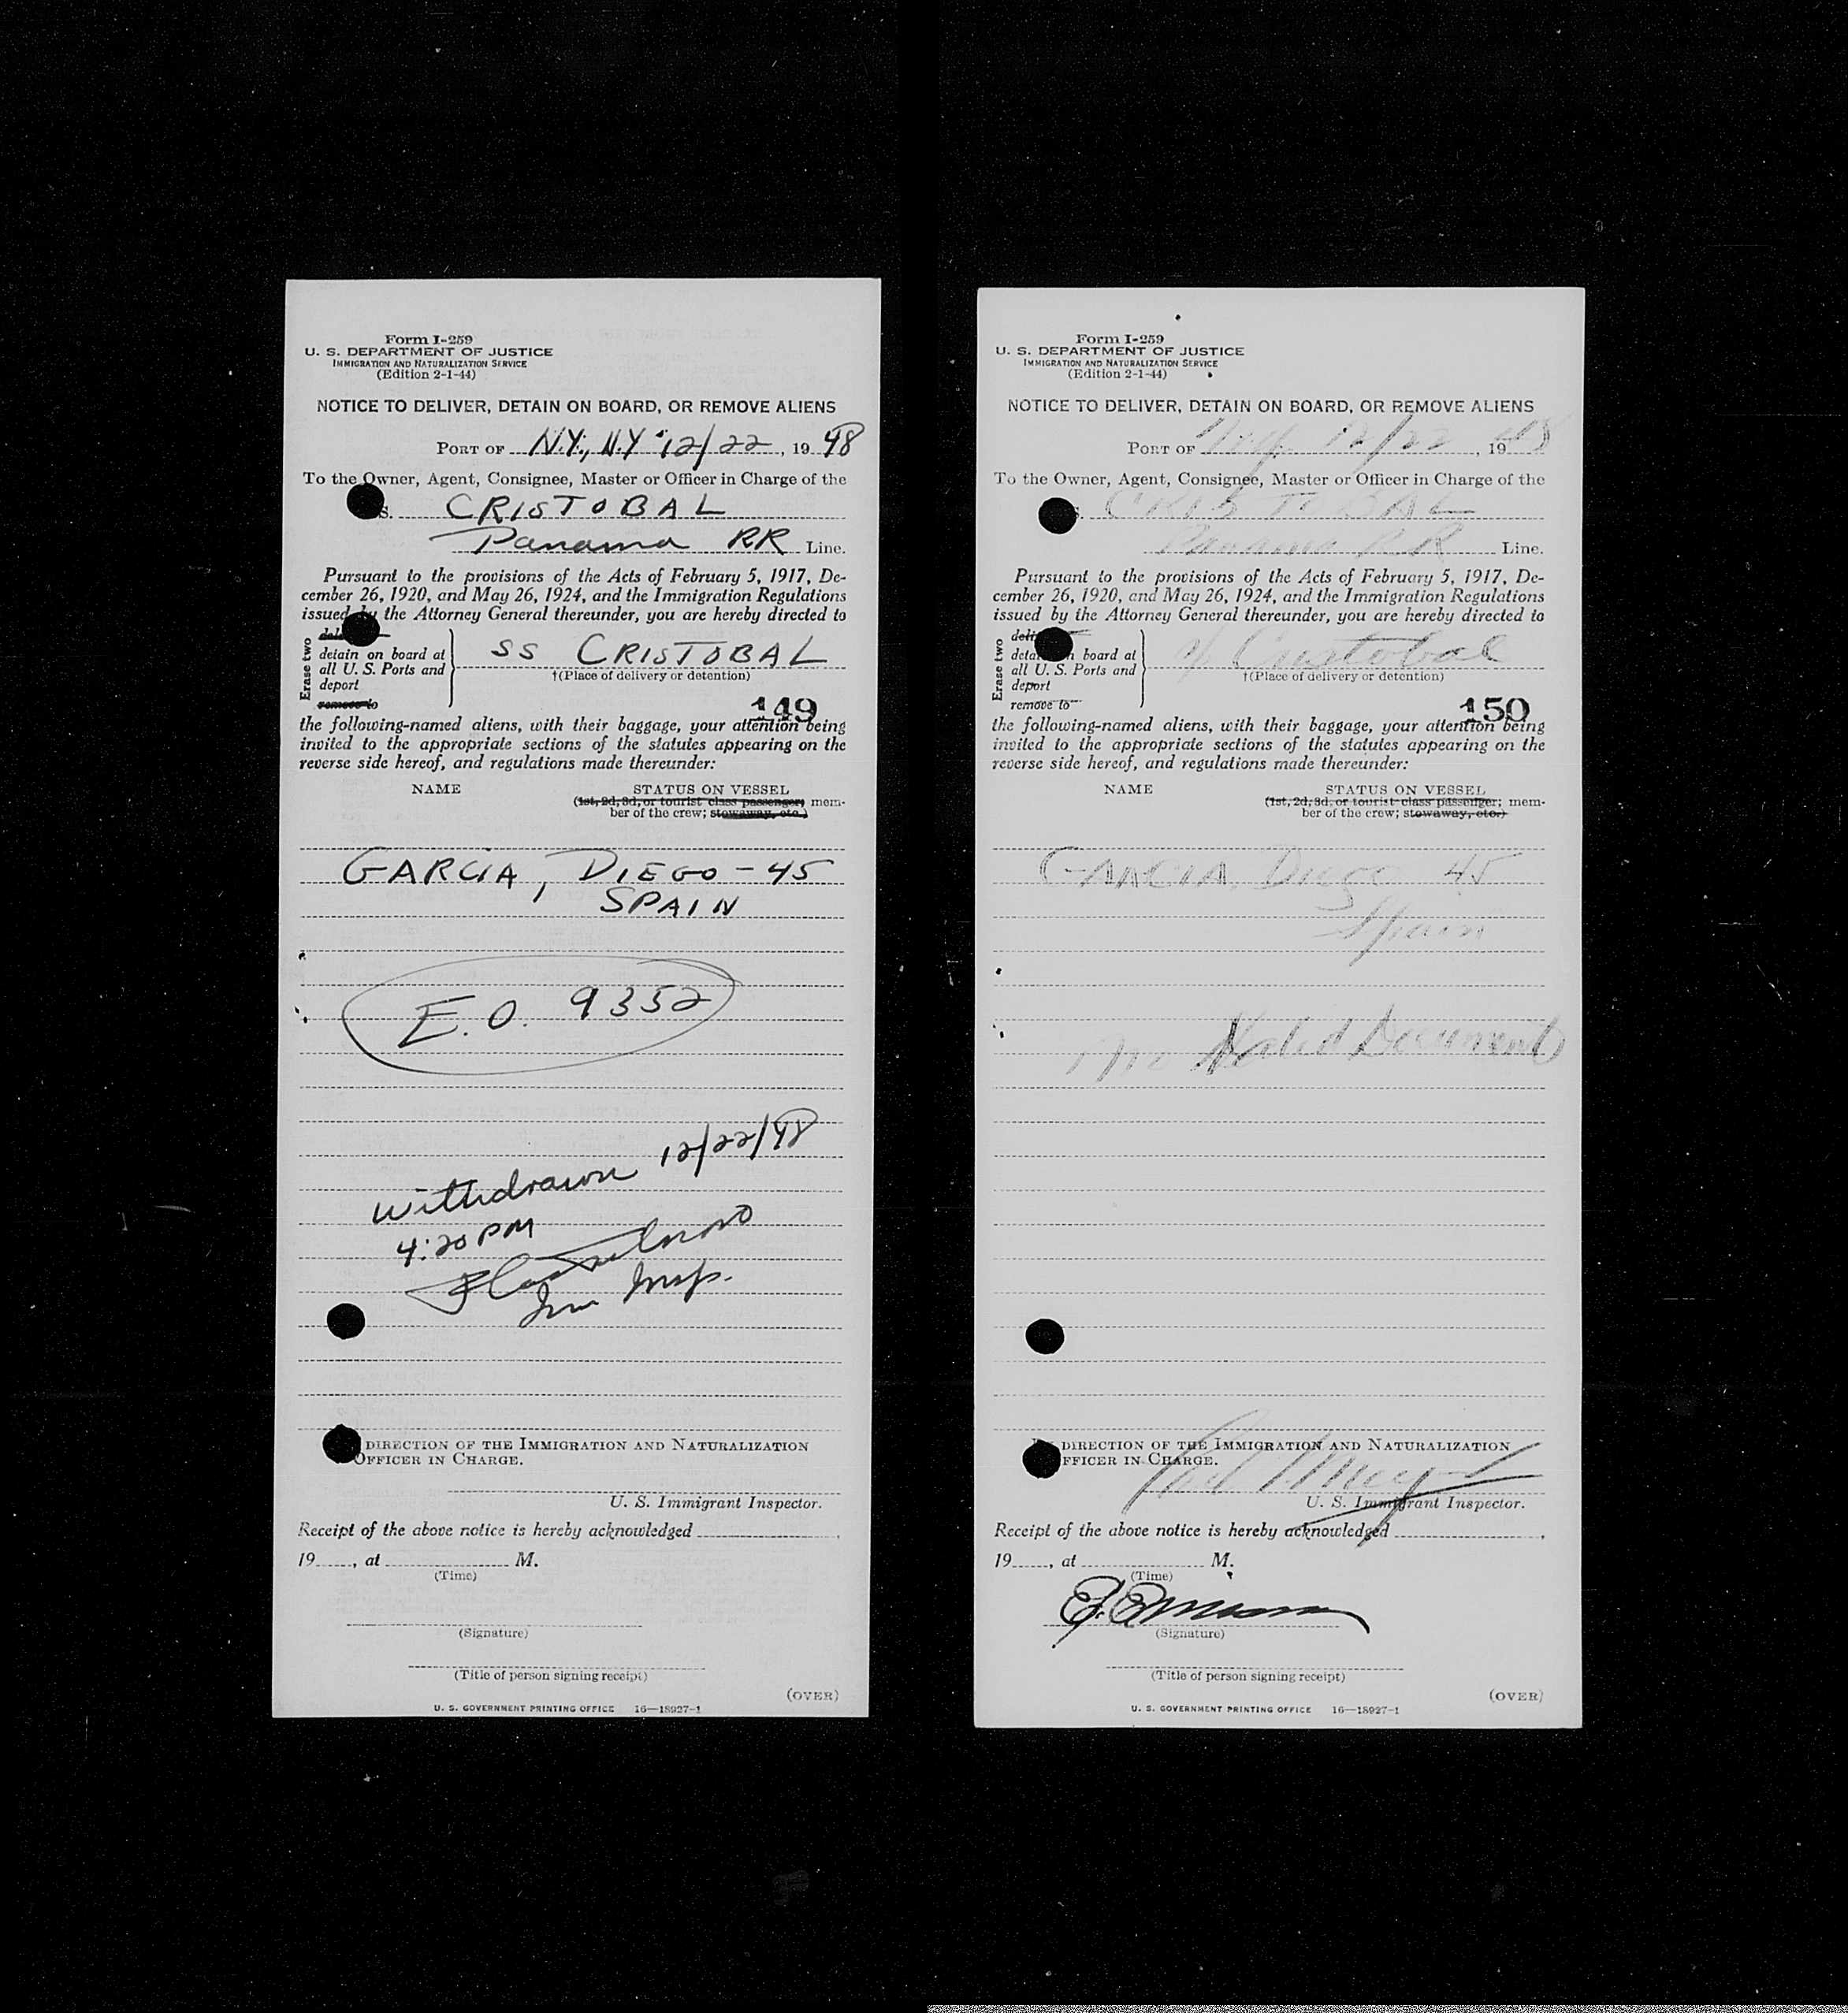 Form I-259
U. S. DEPARTMENT OF JUSTICE
IMMIGRATION AND NATURALIZATION SERVICE
(Edition 2-1-44)
NOTICE TO DELIVER, DETAIN ON BOARD, OR REMOVE ALIENS
PORT OF N.Y., N.Y 12/22, 1948
To the Owner, Agent, Consignee, Master or Officer in Charge of the
S. CRISTOBAL
Panama RR Line.
Pursuant to the provisions of the Acts of February 5, 1917, De-
cember 26, 1920, and May 26, 1924, and the Immigration Regulations
issued by the Attorney General thereunder, you are hereby directed to
Erase two
detain on board at
all U. S. Ports and
deport
remove to
SS CRISTOBAL
†(Place of delivery or detention)
149
the following-named aliens, with their baggage, your attention being
invited to the appropriate sections of the statutes appearing on the
reverse side hereof, and regulations made thereunder:
NAME STATUS ON VESSEL
(1st, 2d, 3d, or tourist class passenger; mem-
ber of the crew; stowaway, etc.)
GARCIA, DIEGO - 45
SPAIN
E.O. 9352
withdrawn 12/22/48
4:20 PM
Imm Insp.
DIRECTION OF THE IMMIGRATION AND NATURALIZATION
OFFICER IN CHARGE.
U. S. Immigrant Inspector.
Receipt of the above notice is hereby acknowledged
19, at M.
(Time)
(Signature)
(Title of person signing receipt)
(OVER)
U. S. GOVERNMENT PRINTING OFFICE 16—18927-1
Form I-259
U. S. DEPARTMENT OF JUSTICE
IMMIGRATION AND NATURALIZATION SERVICE
(Edition 2-1-44)
NOTICE TO DELIVER, DETAIN ON BOARD, OR REMOVE ALIENS
PORT OF 12/22, 1948
To the Owner, Agent, Consignee, Master or Officer in Charge of the
CRISTOBAL
Panama RR Line.
Pursuant to the provisions of the Acts of February 5, 1917, De-
cember 26, 1920, and May 26, 1924, and the Immigration Regulations
issued by the Attorney General thereunder, you are hereby directed to
Erase two
detain on board at
all U. S. Ports and
deport
remove to
Cristobal
†(Place of delivery or detention)
150
the following-named aliens, with their baggage, your attention being
invited to the appropriate sections of the statutes appearing on the
reverse side hereof, and regulations made thereunder:
NAME STATUS ON VESSEL
(1st, 2d, 3d, or tourist class passenger; mem-
ber of the crew; stowaway, etc.)
GARCIA, Diego 45
Spain
No Valid Document
DIRECTION OF THE IMMIGRATION AND NATURALIZATION
OFFICER IN CHARGE.
U. S. Immigrant Inspector.
Receipt of the above notice is hereby acknowledged
19, at M.
(Time)
(Signature)
(Title of person signing receipt)
(OVER)
U. S. GOVERNMENT PRINTING OFFICE 16—18927-1